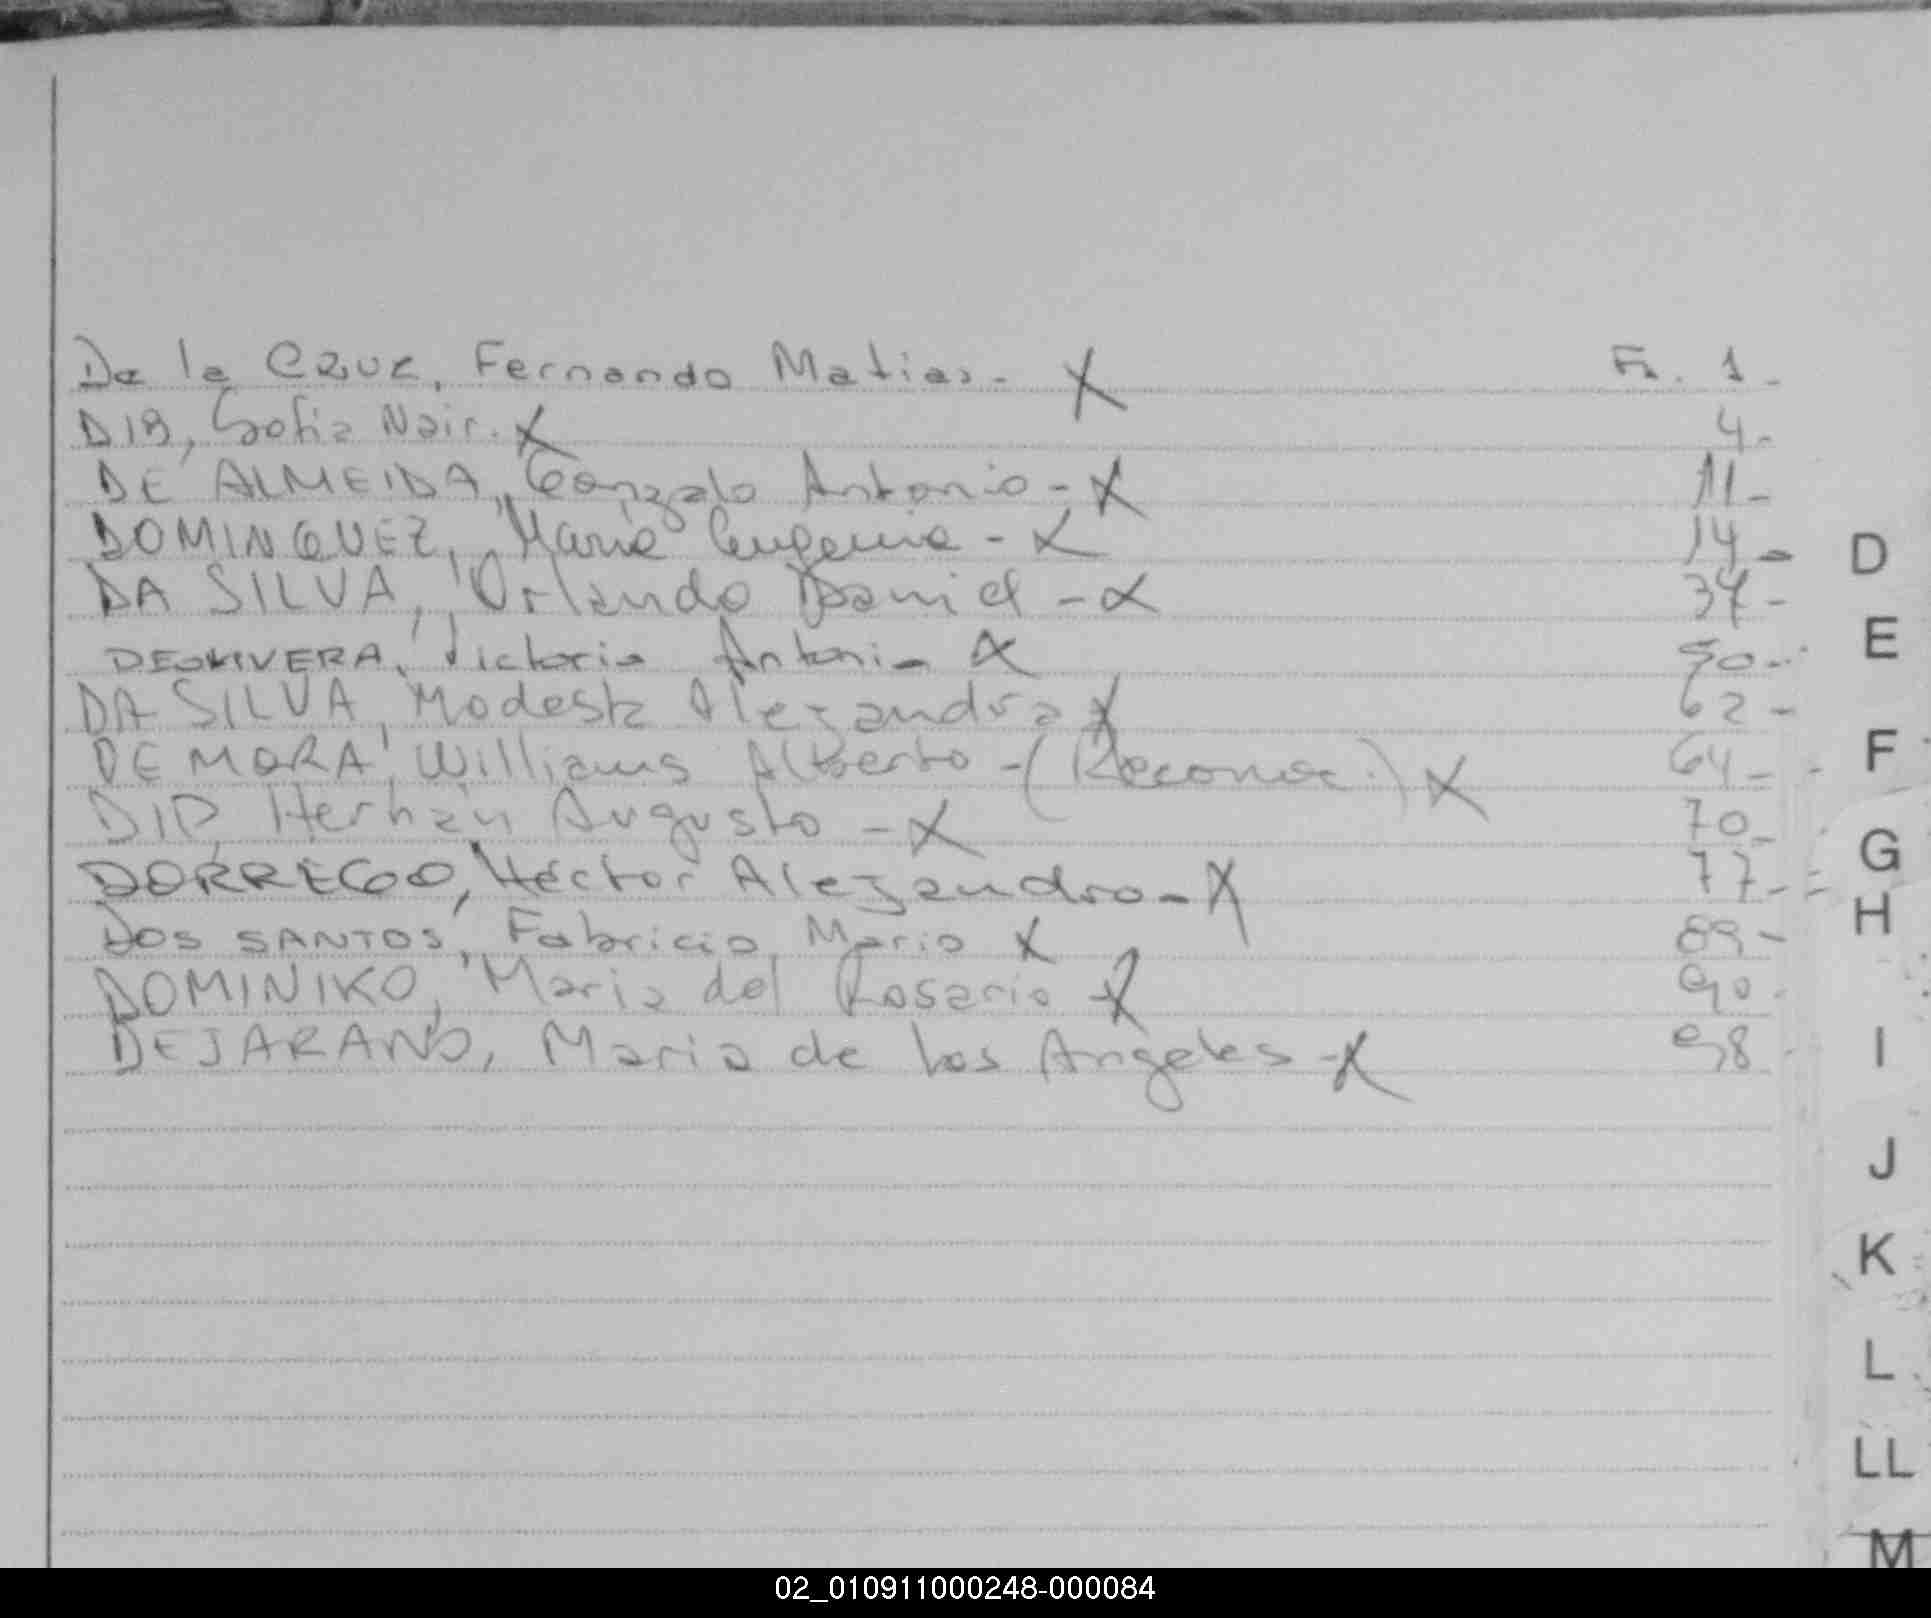 De la Cruz, Fernando Matias - X Fs. 1 -
DIB, Sofia Nair. X 4 -
DE ALMEIDA, Gonzalo Antonio - X 11 -
DOMINGUEZ, Maria Eugenia - X 14 -
DA SILVA, Orlando Daniel - X 34 -
DEOLIVERA, Victoria Antoni- X 50 -
DA SILVA, Modesta Alejandra X 62 -
DE MORA, Williams Alberto - (Reconoc.) X 64 -
DIP, Hernán Augusto - X 70 -
DORREGO, Héctor Alejandro - X 77 -
Dos SANTOS, Fabricio Mario X 89 -
DOMINIKO, Maria del Rosario - X 90 -
DEJARANO, Maria de los Angeles - X 98
D
E
F
G
H
I
J
K
L
LL
M
02_010911000248-000084